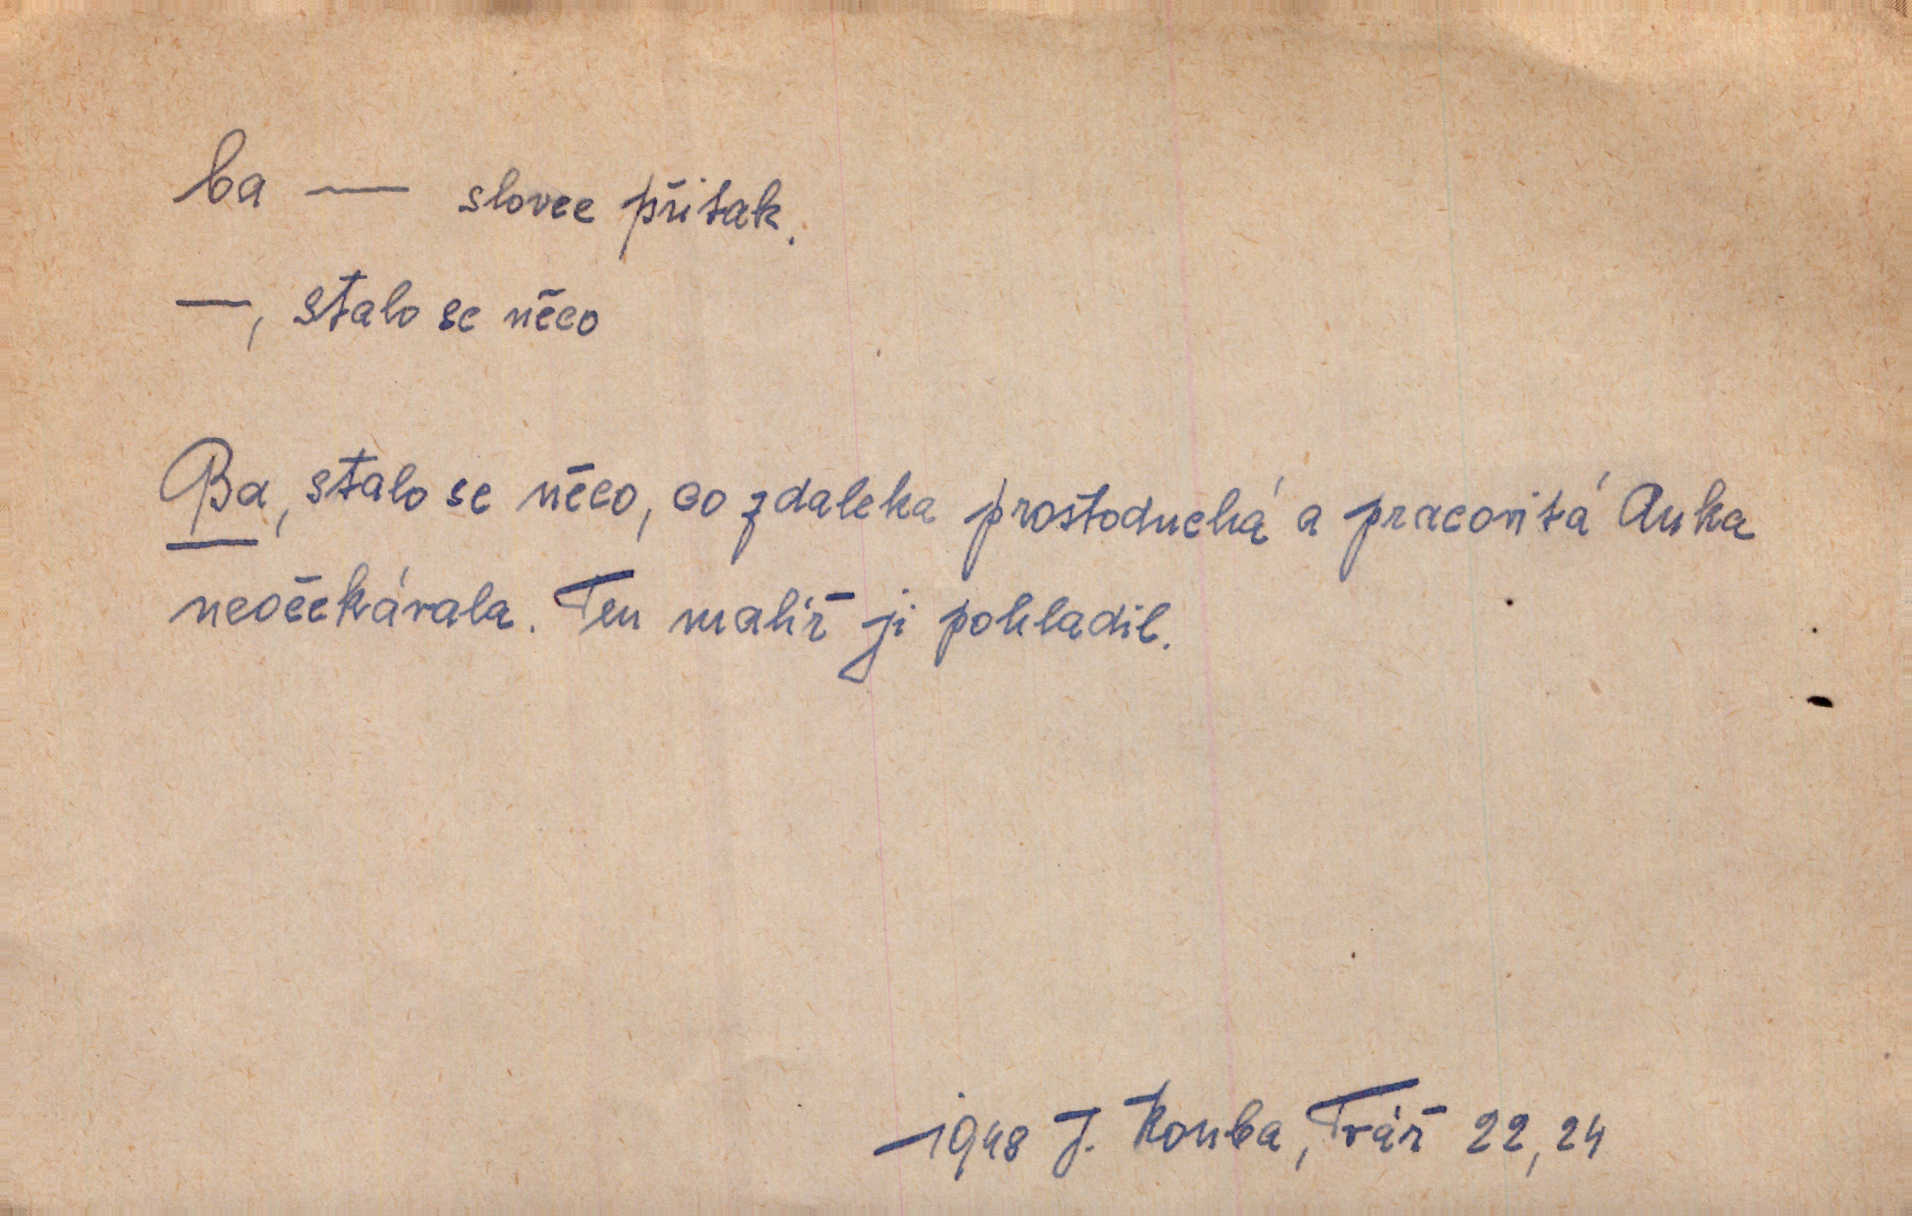 ba — slovce přitak.
—, stalo se něco
Ba, stalo se něco, co zdaleka prostoduchá a pracovitá Anka
neočekávala. Ten malíř ji pohladil.
1948 J. Kouba, Tvář 22, 24